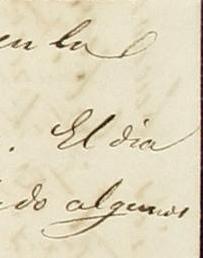 en la
. El dia
do algunos